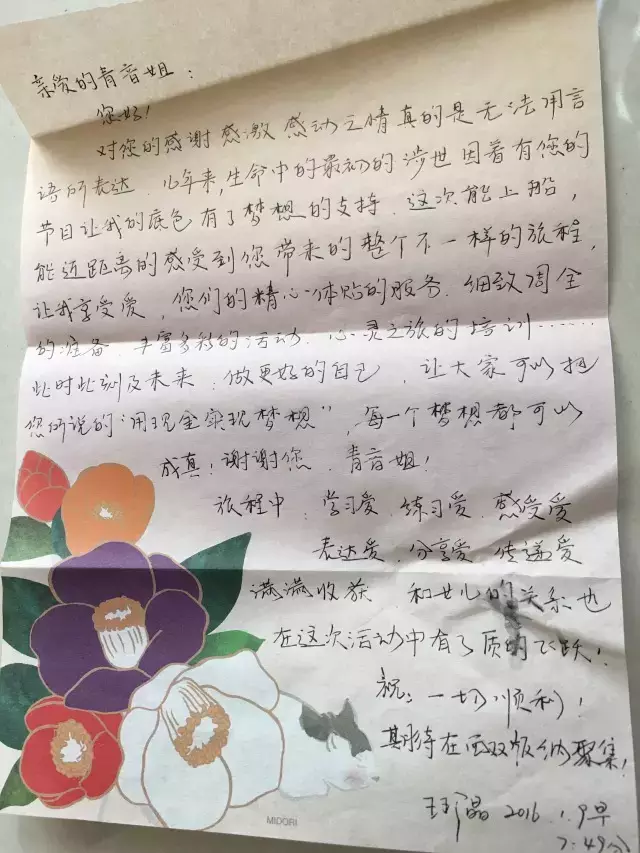 亲爱的青音姐：
您好！
对您的感谢 感激 感动之情真的是无法用言
语所表达．几年来，生命中的最初的涉世因着有您的
节目让我的底色有了梦想的支持．这次能上船，
能近距离的感受到您带来的整个不一样的旅程，
让我享受爱，您们的精心体贴的服务．细致周全
的准备．丰富多彩的活动．心灵之旅的培训……
此时此刻及未来．做更好的自己，让大家可以把
您所说的“用现金实现梦想”，每一个梦想都可以
成真！谢谢您．青音姐！
旅程中．学习爱．练习爱．感受爱
表达爱．分享爱．传递爱
满满收获．和女儿的关系也
在这次活动中有了质的飞跃！
祝：一切顺利！
期待在西双版纳聚集！
晶 2016．1．9早
7：49分
MIDORI